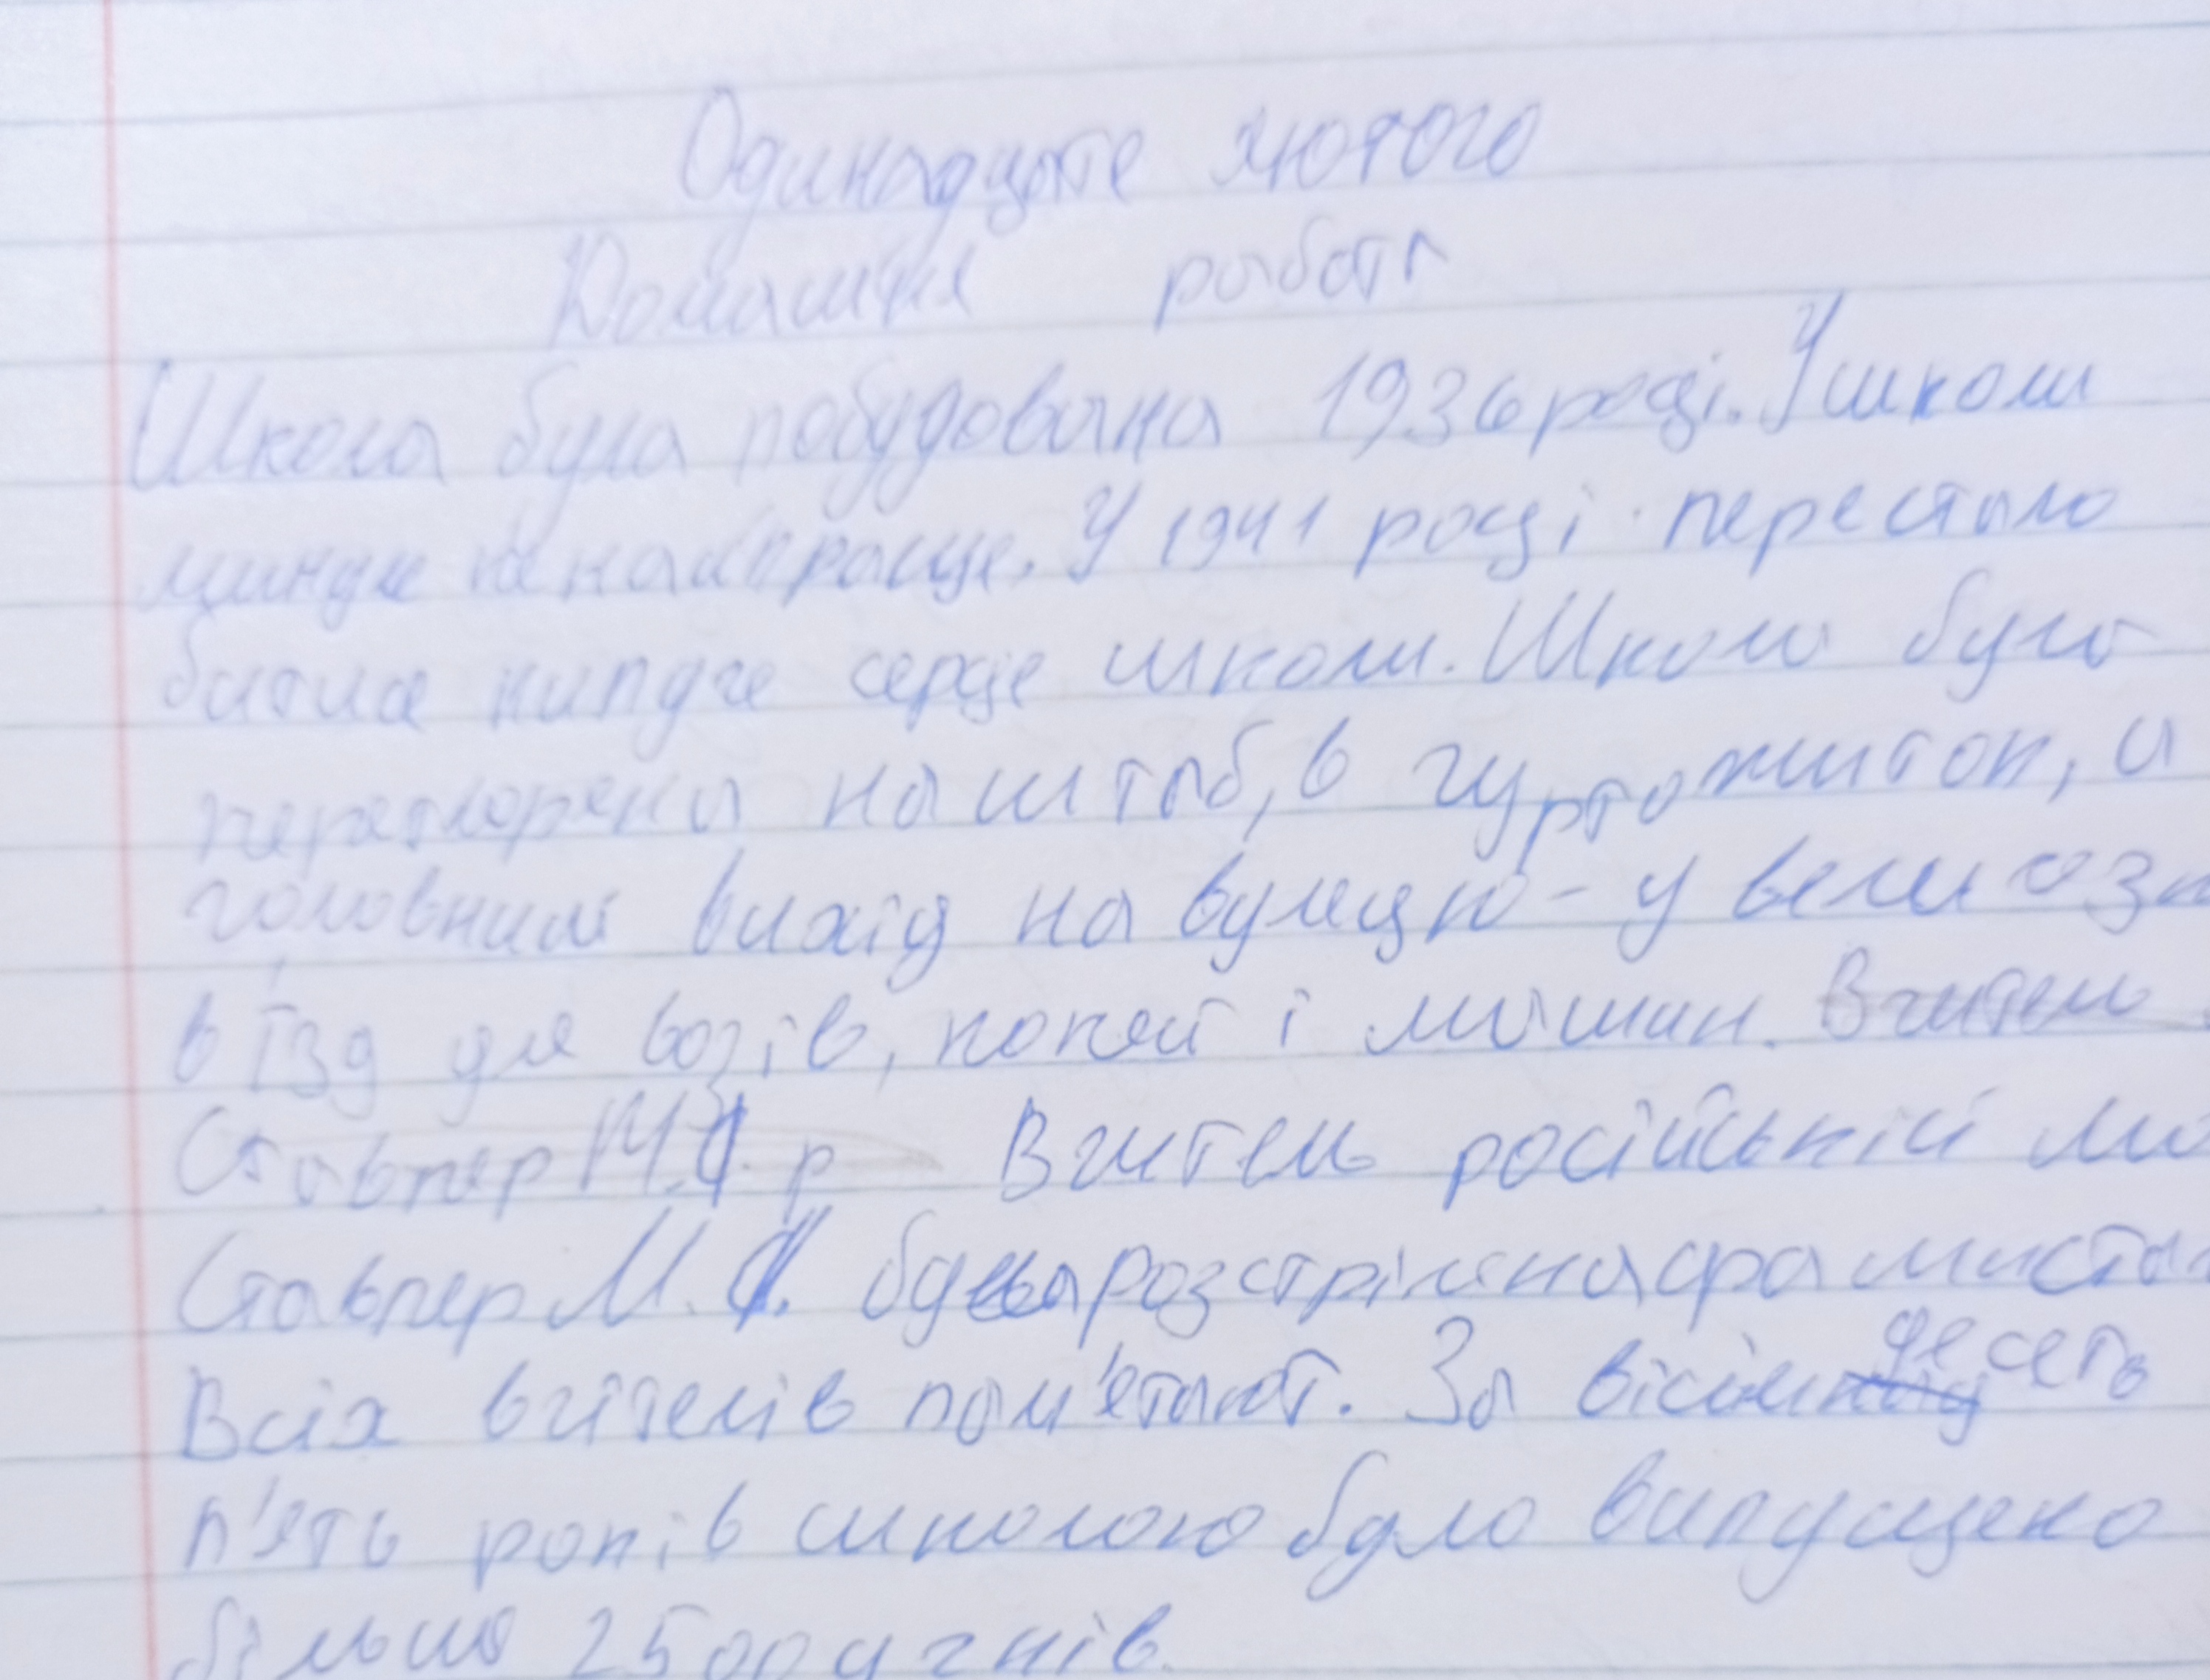 Одинадцяте лютого
Домашня робота
Школа була побудована 1936 році. У школи
найкраще. У 1941 році перестало
битися серце школи. Школо було
перетворена на штаб, в гуртожиток, а
головний вихід на вулицю - у
в'їзд для возів, коней і машин. Вчитель
Ставпер М. р Вчитель російській
Ставпер М. розстріляна
Всіх вчителів пам'ятают. За вісімдесеть
п'ять років школою було випущено
більше 2500 учнів.